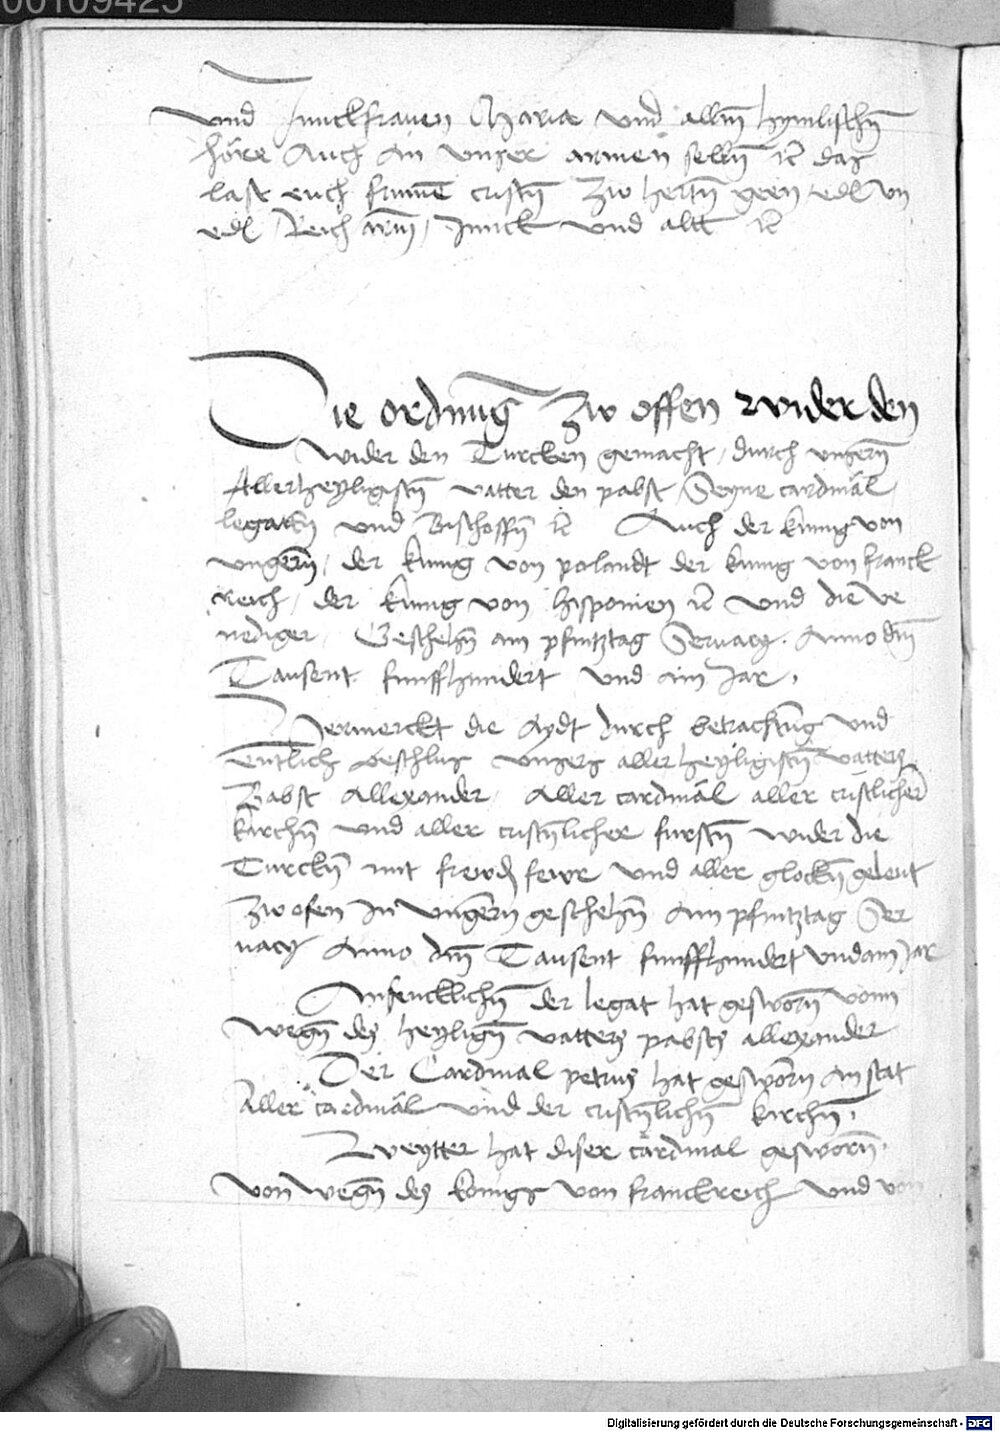 00109425
vnd Junckfrawen Maria vnd allm̄ hymlischn̄
höre Auch An vnser armen selln̄ ꝛc das
last euch frume cristn̄ zw hertzn̄ geen edl vn̄
edl Reich arm̄ / Junck vnd altt ꝛc
Die ordnūg zw offen wider den
wider den Turcken gemacht / durch vnsern̄
Allerheyligistn̄ vatter den pabst / Seyne cardinäl
legattn̄ vnd Bischoffn̄ ꝛc Auch der kunig von
vngern̄ / der kunig von polandt der kunig von franck
reich / der kunig von hisponien ꝛc vnd die ve
nediger / Geschehn̄ am pfintztag Seruacij . Anno dm̄
Tausent funffhundert vnd ain Jar .
Vermerckt die Aydt durch betrachtūg vnd
entlich beschlus vnsers aller heyligistn̄ vatters
Babst Allexander / Aller cardinäl aller cristlicher
kirchn̄ vnd aller cristn̄licher furstn̄ wider die
Turckn̄ mit frewdn̄ fewr vnd aller glockn̄ geleut
zw ofen In vngern̄ geschehn̄ Am pfintztag Ser
uacij Anno dm̄ Tausent funffhundert vnd ain Jar
Anfencklichn̄ der legat hat gesworn̄ vonn
wegn̄ des heylign̄ vatters pabsts allexander
Der Cardinal petrus hat gesworn̄ an stat
Aller cardinäl vnd der cristn̄lichn̄ kirchn̄ .
Zweytter hat diser cardinal gesworn̄ .
von wegn̄ des konigs von franckreich vnd von
Digitalisierung gefördert durch die Deutsche Forschungsgemeinschaft - DFG